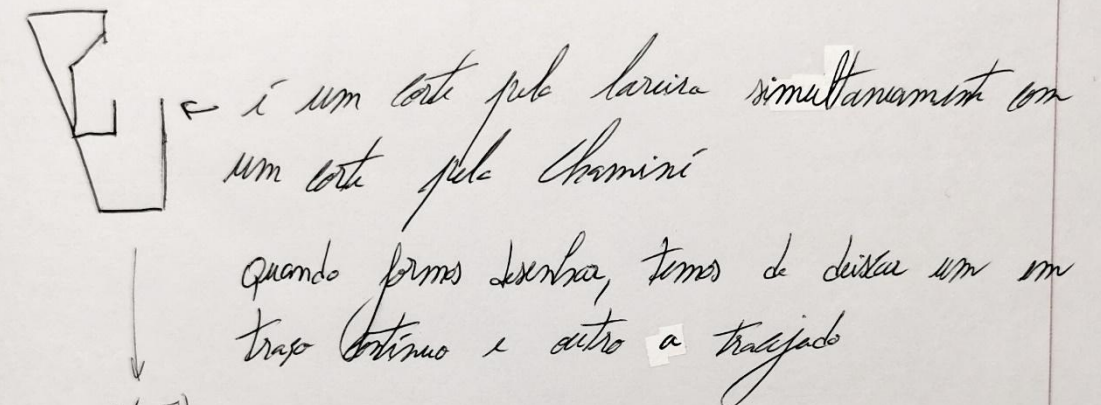 é um corte pela lareira simultaneamente com
um corte pela chaminé
quando formos desenhar, temos de deixar um em
traço contínuo e outro a tracejado